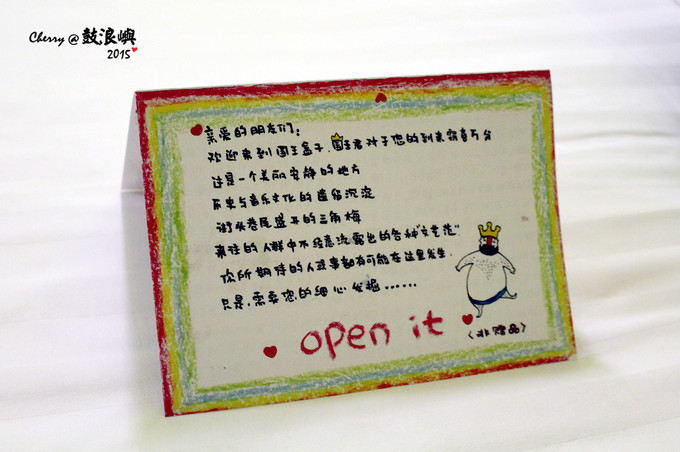 Cherry @ 鼓浪屿
2015
亲爱的朋友们:
欢迎来到国王盒子.国王君对于您的到来窃喜万分
这是一个美丽安静的地方
历史与音乐文化的遗留沉淀
街头巷尾盛开的三角梅
来往的人群中不经意流露出的各种"文艺范"
你所期待的人或事都有可能在这里发生.
只是,需要您的细心发掘......
open it
<非赠品>